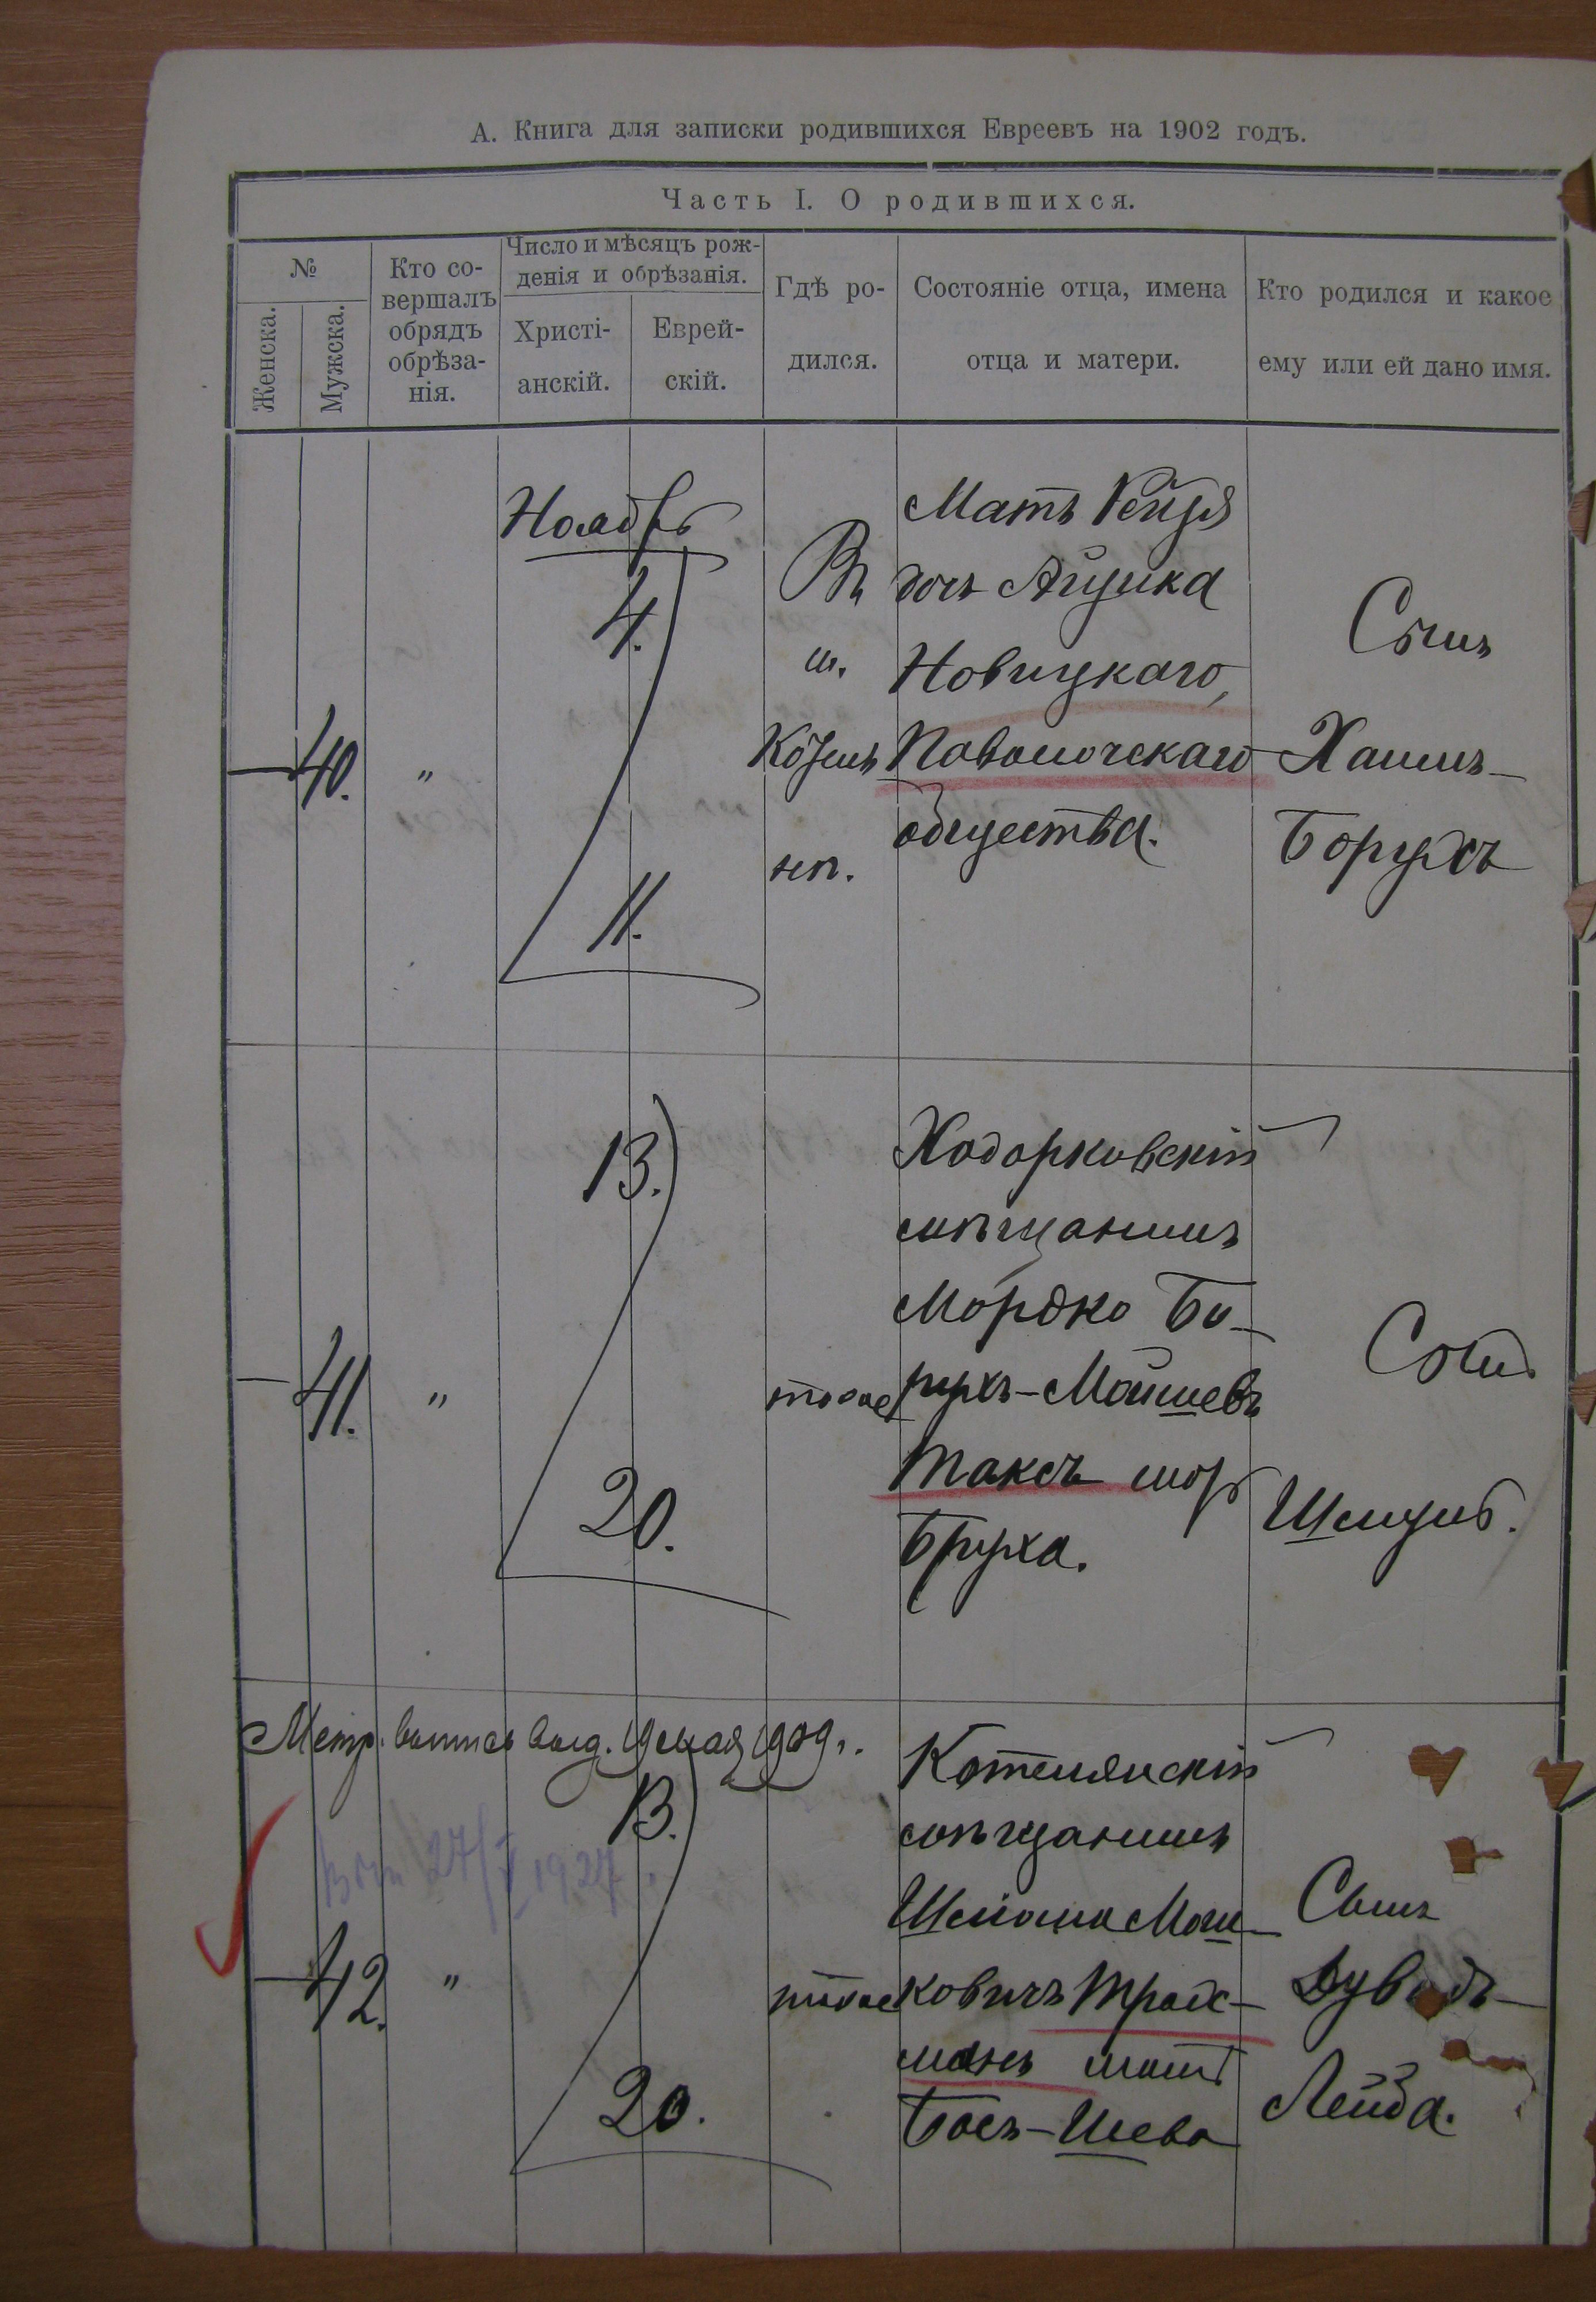 А. Книга для записки родившихся Евреевъ на 1902 годъ.
Часть I. О родившихся.
№
Женска.
Мужска.
Кто со-
вершалъ
обрядъ
обрѣза-
нія.
Число и мѣсяцъ рож-
денія и обрѣзанія.
Христі-
анскій.
Еврей-
скій.
Гдѣ ро-
дился.
Состояніе отца, имена
отца и матери.
Кто родился и какое
ему или ей дано имя.
—40.
"
Ноябрь
4.
11.
Въ
м.
нѣ.
Мать Рейзя
дочь Айзика
Новицкаго,
Паволочскаго
общества.
Сынъ
Хаимъ-
Борухъ
—41.
"
13.
20.
тоже
Ходорковскій
мѣщанинъ
Мордко Бо-
рухъ-Мошевъ
Таксъ
Бруха.
Сынъ
Шмуль.
Метр. выпись выд. 19 мая 1909 г.
27/V 1927
—42.
"
13.
20.
тоже
Котелянскій
мѣщанинъ
Шлиома Мош-
ковичъ Трахт-
манъ мать
Бася-Шева
Сынъ
Дувидъ-
Лейба.